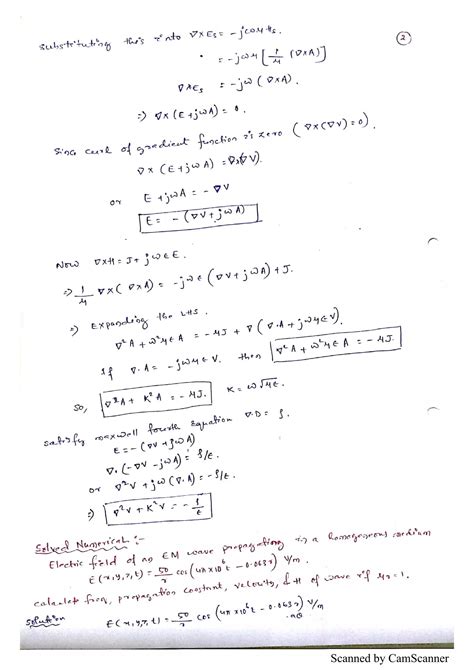 ②
Substituting this into ∇×Es = -jωμHs.
= -jωμ[1/μ (∇×A)]
∇×Es = -jω(∇×A).
⇒ ∇×(E+jωA) = 0.
Since curl of gradient function is zero (∇×(∇V)=0).
∇×(E+jωA) = ∇×(∇V).
or E+jωA = -∇V
E = -(∇V+jωA)
Now ∇×H = J+jωϵE.
⇒ 1/μ ∇×(∇×A) = -jωϵ(∇V+jωA)+J.
⇒ Expanding the LHS.
∇²A+ω²μϵA = -μJ+∇(∇.A+jωμϵV).
If ∇.A = -jωμϵV. then ∇²A+ω²μϵA = -μJ.
So, ∇²A+K²A = -μJ. K = ω√μϵ.
satisfy maxwell fourth Equation ∇.D = ρ.
E = -(∇V+jωA)
∇.(-∇V-jωA) = ρ/ϵ.
or ∇²V+jω(∇.A) = -ρ/ϵ.
⇒ ∇²V+K²V = -1/ϵ
Solved Numerical :-
Electric field of an EM wave propagating in a homogeneous medium
E(x,y,z,t) = 50/r cos(4π×10⁶t - 0.063r) V/m
calculate freq, propagation constant, velocity, & H of wave if μr=1.
Solution E(x,y,z,t) = 50/r cos(4π×10⁶t - 0.063r) V/m
Scanned by CamScanner